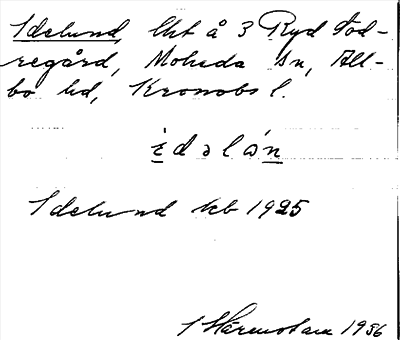 Idelund, lht å 3 Ryd Sod-
regård, Moheda sn, All-
bo hd, Kronobs l.
i d ə l ə́ n
Idelund kb 1925
1956